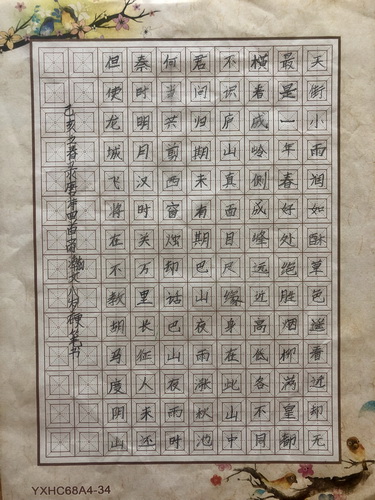 天街小雨润如酥草色遥看近却无
最是一年春好处绝胜烟柳满皇都
横看成岭侧成峰远近高低各不同
不识庐山真面目只缘身在此山中
君问归期未有期巴山夜雨涨秋池
何当共剪西窗烛却话巴山夜雨时
秦时明月汉时关万里长征人未还
但使龙城飞将在不教胡马度阴山
己亥之春录唐诗四首八岁硬笔书
YXHC68A4-34